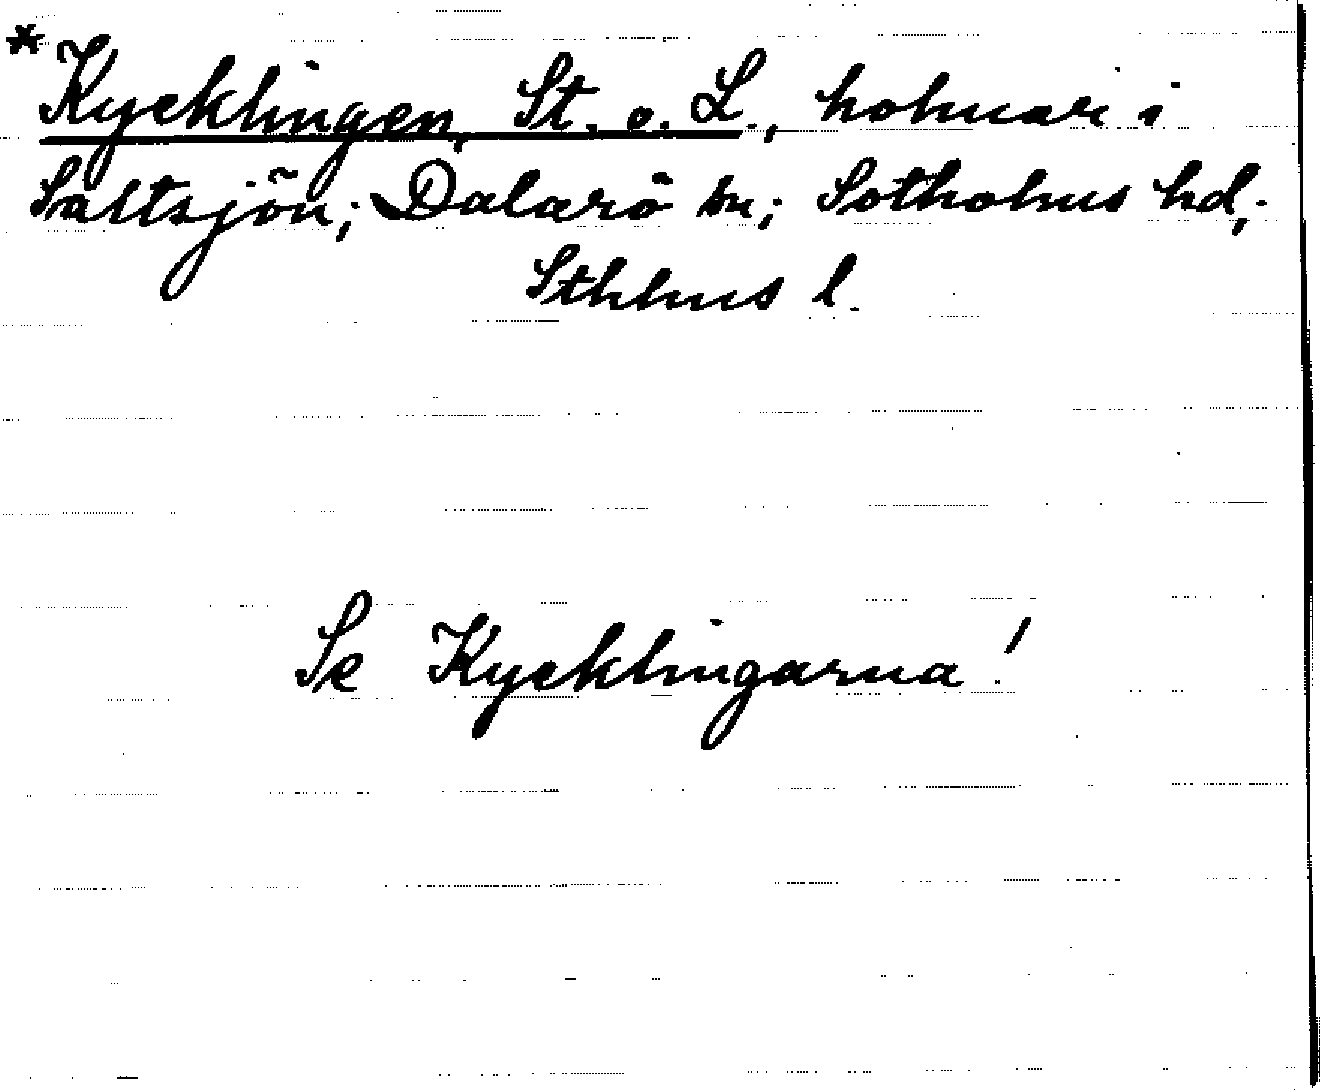 *Kycklingen, St. o. L., holmar i
Saltsjön; Dalarö sn; Sotholms hd;
Sthlms l.
Se Kycklingarna!